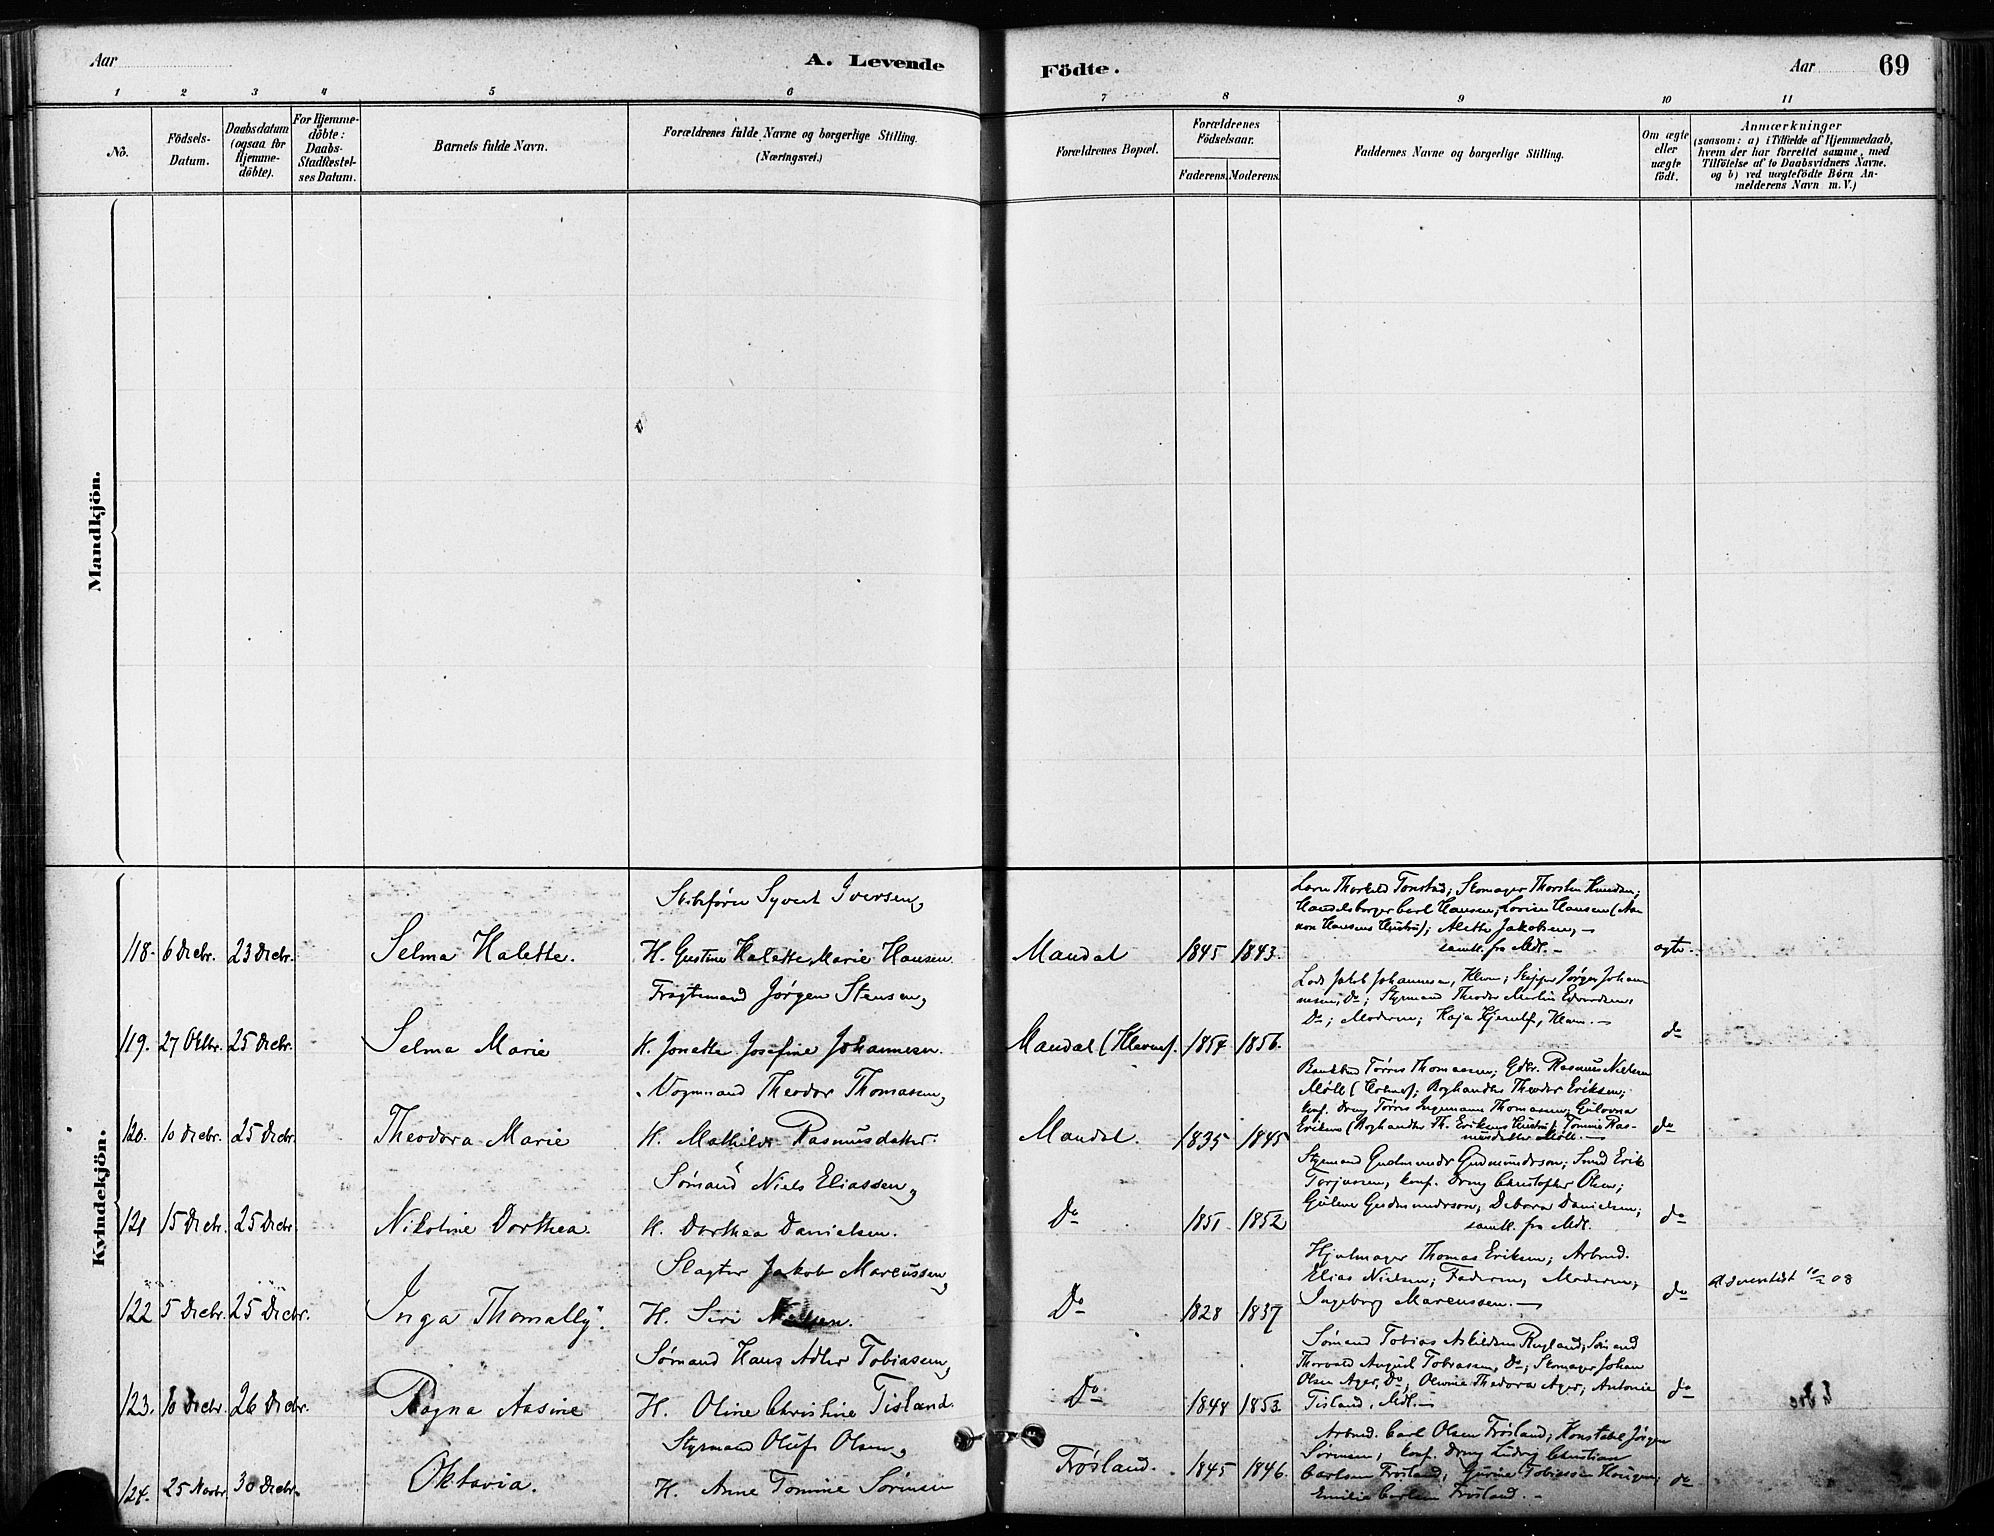 Aar
A. Levende
Födte.
Aar
69
1 2 3 4 5 6 7 8 9 10 11
No.
Födsels-
Datum.
Daabsdatum
(ogsaa for
Hjemme-
döbte).
For Hjemme-
döbte:
Daabs-
Stadfæstel-
ses Datum.
Barnets fulde Navn.
Forældrenes fulde Navne og borgerlige Stilling.
(Næringsvei.)
Forældrenes Bopæl.
Forældrenes
Födselsaar.
Faderens. Moderens.
Faddernes Navne og borgerlige Stilling.
Om ægte
eller
uægte
födt.
Anmærkninger
(saasom: a) i Tilfælde af Hjemmedaab,
hvem der har forrettet samme, med
Tilföielse af to Daabsvidners Navne,
og b) ved uægtefödte Börn An-
melderens Navn m. V.)
Mandkjön.
Kvindekjön.
Skibsfører Syvert Iversen,
118. 6 Decbr. 23 Decbr. Selma Halette. H. Gustine Halette Marie Hansen. Mandal 1845 1843. ægte.
Thorkild Tonstad; Skomager Thorsten Knudsen;
Handelsborger Carl Hansen; Lovise Hansen
Hansens Hustru); Alette Jakobsen,
samtl. fra Mdl.
Fragtemand Jørgen Stensen,
119. 27 Oktbr. 25 Decbr. Selma Marie K. Jonette Josefine Johannesen. Mandal (Kleven). 1854 1856. do
Lods Jakob Johannesen, Kleven; Skipper Jørgen Johan-
nesen, Do; Styrmand Theodor Martin Edvardsen,
Do; Moderen; Kaja Hjerulf, Kleven.
Vognmand Theodor Thomasen,
120. 10 Decbr. 25 Decbr. Theodora Marie K. Mathilde Rasmusdatter. Mandal. 1835 1845 do
Tørres Thomassen; Gdbr. Rasmus Nielsen
Møll (Holme); Boghandler Theodor Eriksen;
konf. Dreng Tørres Ingemann Thomasen; Gulovna
Eriksen (Boghandler Th. Eriksens Hustru); Tomine Ras-
musdatter Møll.
Sømand Niels Eliassen,
121 15 Decbr. 25 Decbr. Nikoline Dorthea. K. Dorthea Danielsen. Do 1851 1852 do
Styrmand Gudmunder Gudmundsson; Smed Erik
Torjussen, konf. Dreng Christopher Olsen;
Gudmundsson; Debora Danielsen;
samtl. fra Mdl.
Slagter Jakob Marcussen,
122 5 Decbr. 25 Decbr. Inga Thomally. H. Siri Nielsen. Do 1828 1837 do
Hjulmager Thomas Eriksen; Arbmd.
Elias Nielsen; Faderen; Moderen;
Ingeborg Marcussen.
Sømand Hans Adler Tobiasen,
123. 10 Decbr. 26 Decbr. Ragna Aasine H. Oline Christine Tisland. Do 1848 1853. do
Sømand Tobias Askildsen Røgland; Sømand
Thorvald August Tobiassen, Do; Skomager Johan
Olsen Ager, Do; Theodora Ager; Antonie
Tisland, Mdl.
Styrmand Oluf Olsen,
124. 25 Novbr. 30 Decbr. Oktavia. H. Anne Tomine Sørensen Frøsland. 1845 1846. do
Arbmd. Carl Olsen Frøsland; Konstabel Jørgen
Sørensen; konf. Dreng Ludvig Christian
Carlsen Frøsland; Gurine Tobiasen
Emilie Carlsen Frøsland.